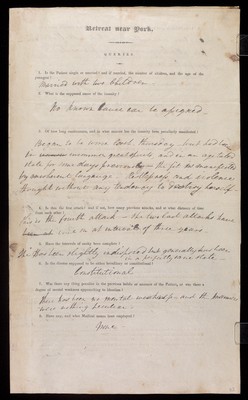 Retreat near York.
QUERIES
1. Is the Patient single or married; and if married, the number of children, and the age of the youngest?
Married with two Children
2. What is the supposed cause of the Insanity?
No known Cause can be assigned
3. Of how long continuance, and in what manner has the Insanity been peculiarly manifested?
Began to be worse last Thursday, but had been
in an agitated
state for some days previously the fit is manifested
by incoherent language - Restlessness and violence
though without any tendency to destroy herself
4. Is this the first attack? and if not, how many previous attacks and at what distance of time from each other?
This is the fourth attack - the two last attacks have
come on at intervals of three years
5. Have the intervals of sanity been complete?
She has been slightly indisposed but generally has been
in a perfectly sane state
6. Is the disease supposed to be either hereditary or constitutional?
Constitutional
7. Was there any thing peculiar in the previous habits or manners of the Patient, or was there a degree of mental weakness approaching to Idiotism?
There has been no mental weakness and the manners
were nothing peculiar
8. Have any, and what Medical means been employed?
None